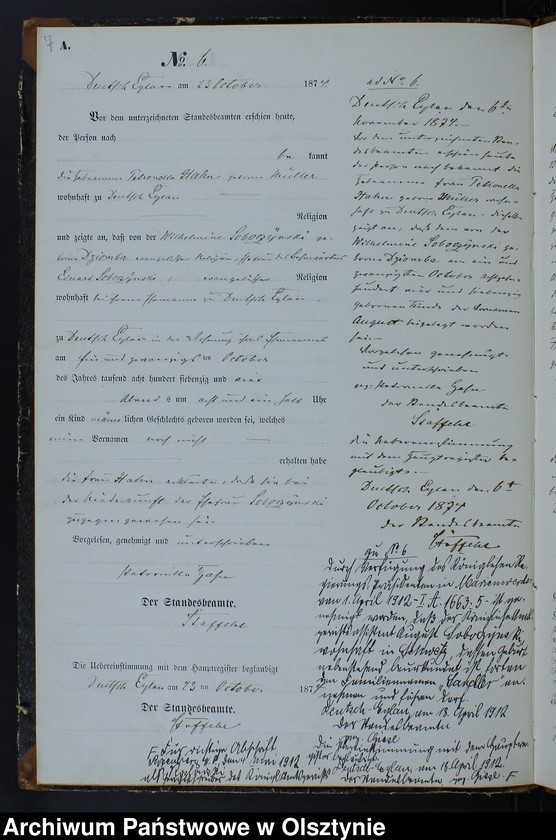 7
A.
No. 6.
Deutsch Eylau am 23 October 1874.
Vor dem unterzeichneten Standesbeamten erschien heute,
der Person nach
be kannt
die Hebeamme Petronella Hahn geborne Müller
wohnhaft zu Deutsch Eylau
Religion
und zeigte an, daß von der Wilhelmine Soboczynski ge-
borne Dziomba evangelischer Religion, Ehefrau des
Eduard Soboczynski, evangelischer Religion
wohnhaft bei ihrem Ehemanne in Deutsch Eylau
zu Deutsch Eylau in der Wohnung ihres Ehemannes
am ein und zwanzigsten October
des Jahres tausend acht hundert siebenzig und vier
Abend s um acht und ein halb Uhr
ein Kind männ lichen Geschlechts geboren worden sei, welches
einen Vornamen noch nicht
erhalten habe
die Frau Hahn erklärte, daß sie bei
der Niederkunft der Ehefrau Soboczynski
zugegen gewesen sei.
Vorgelesen, genehmigt und unterschrieben
Petronella Hahn
Der Standesbeamte.
Staffehl
Die Uebereinstimmung mit dem Hauptregister beglaubigt
Deutsch Eylau am 23 ten October 187 4
Der Standesbeamte.
Staffehl
ad No 6.
Deutsch Eylau den 6ten
November 1874.
Vor dem unterzeichneten Stan-
desbeamten erschien heute
der Person nach bekannt die
Hebeamme Frau Petronella
Hahn geborne Müller wohn-
haft zu Deutsch Eylau. dieselbe
zeigt an, daß dem von der
Wilhelmine Soboczynski ge-
borne Dziomba am ein und
zwanzigsten October achtzehn
hundert vier und siebenzig
gebornen Kinde der Vornamen
August beigelegt worden
sei.
Vorgelesen genehmigt
und unterschrieben
gez. Petronella Hahn
der Standesbeamte
Staffehl
die Uebereinstimmung
mit dem Hauptregister be-
glaubigt
Deutsch Eylau den 6t
October 1874
der Standesbeamte
Staffehl
Zu No 6
Durch Verfügung des Königlichen Re-
gierungs-Präsidenten in Marienwerder
vom 1. April 1912 - I. A. 1663. 5 - ist ge-
nehmigt worden, daß der Königliche Amts-
gerichtsassistent August Soboczynski
wohnhaft in Schwetz, dessen Geburt
nebenstehend beurkundet ist, fortan
den Familiennamen "Sandler" an-
nehmen und führen darf.
Deutsch-Eylau, am 18. April 1912
Der Standesbeamte
gez. Giese
Die Uebereinstimmung mit dem Hauptre-
gister beglaubigt
Deutsch-Eylau, am 18. April 1912.
Der Standesbeamte gez. Giese
F. Für richtige Abschrift
Rosenberg W.Pr. den 4 Mai 1912
Archiwum Państwowe w Olsztynie